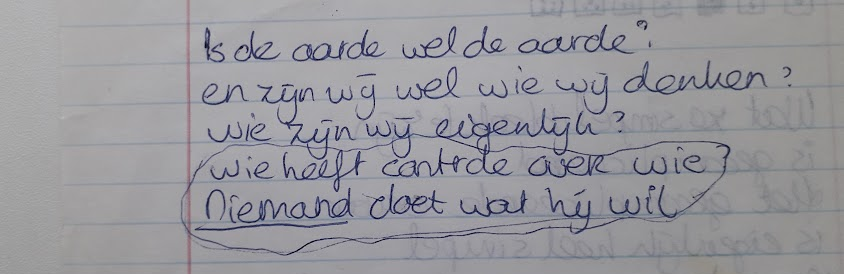 Is de aarde wel de aarde?
en zijn wij wel wie wij denken?
wie zijn wij eigenlijk?
wie heeft controle over wie?
Niemand doet wat hij wil